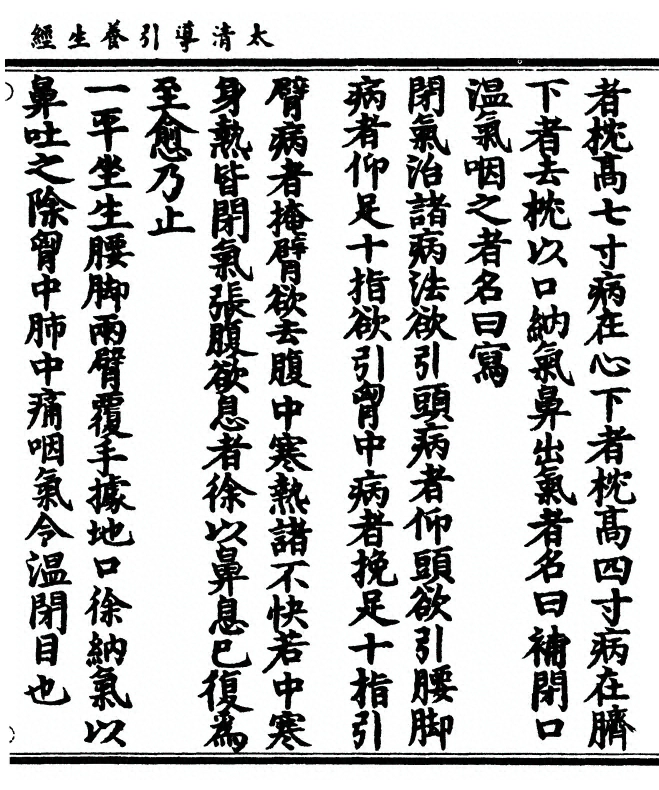 太清導引養生經
者枕髙七寸病在心下者枕髙四寸病在臍
下者去枕以口納氣鼻出氣者名曰補閉口
温氣咽之者名曰寫
閉氣治諸病法欲引頭病者仰頭欲引腰脚
病者仰足十指欲引胷中病者挽足十指引
臂病者掩臂欲去腹中寒熱諸不快若中寒
身熱皆閉氣張腹欲息者徐以鼻息已復為
至愈乃止
一平坐生腰脚兩臂覆手據地口徐納氣以
鼻吐之除胷中肺中痛咽氣令温閉目也